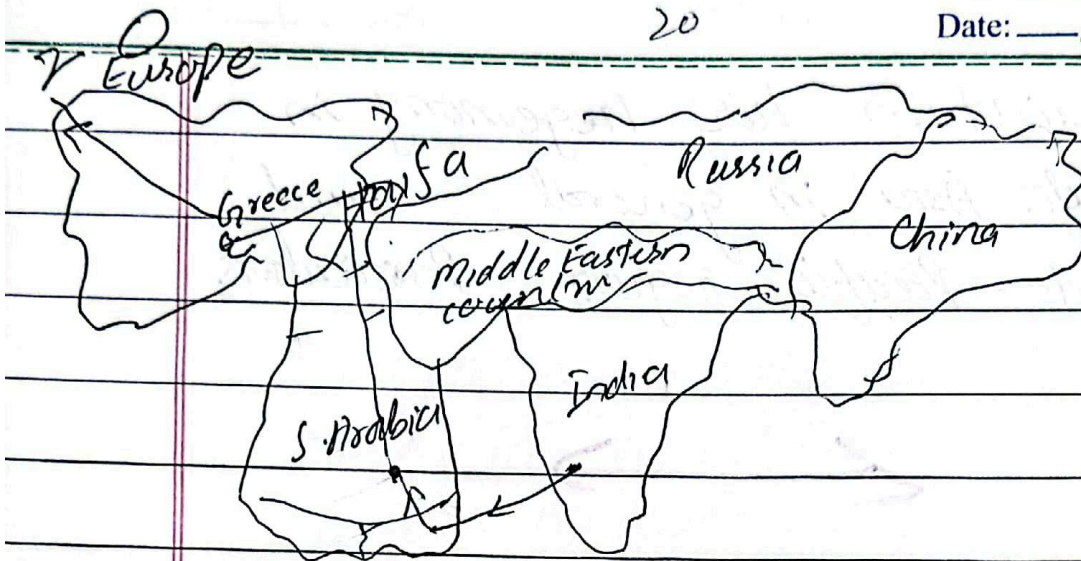 20
Date:
Europe
Greece
Haifa
Russia
China
Middle Eastern
India
S. Arabia